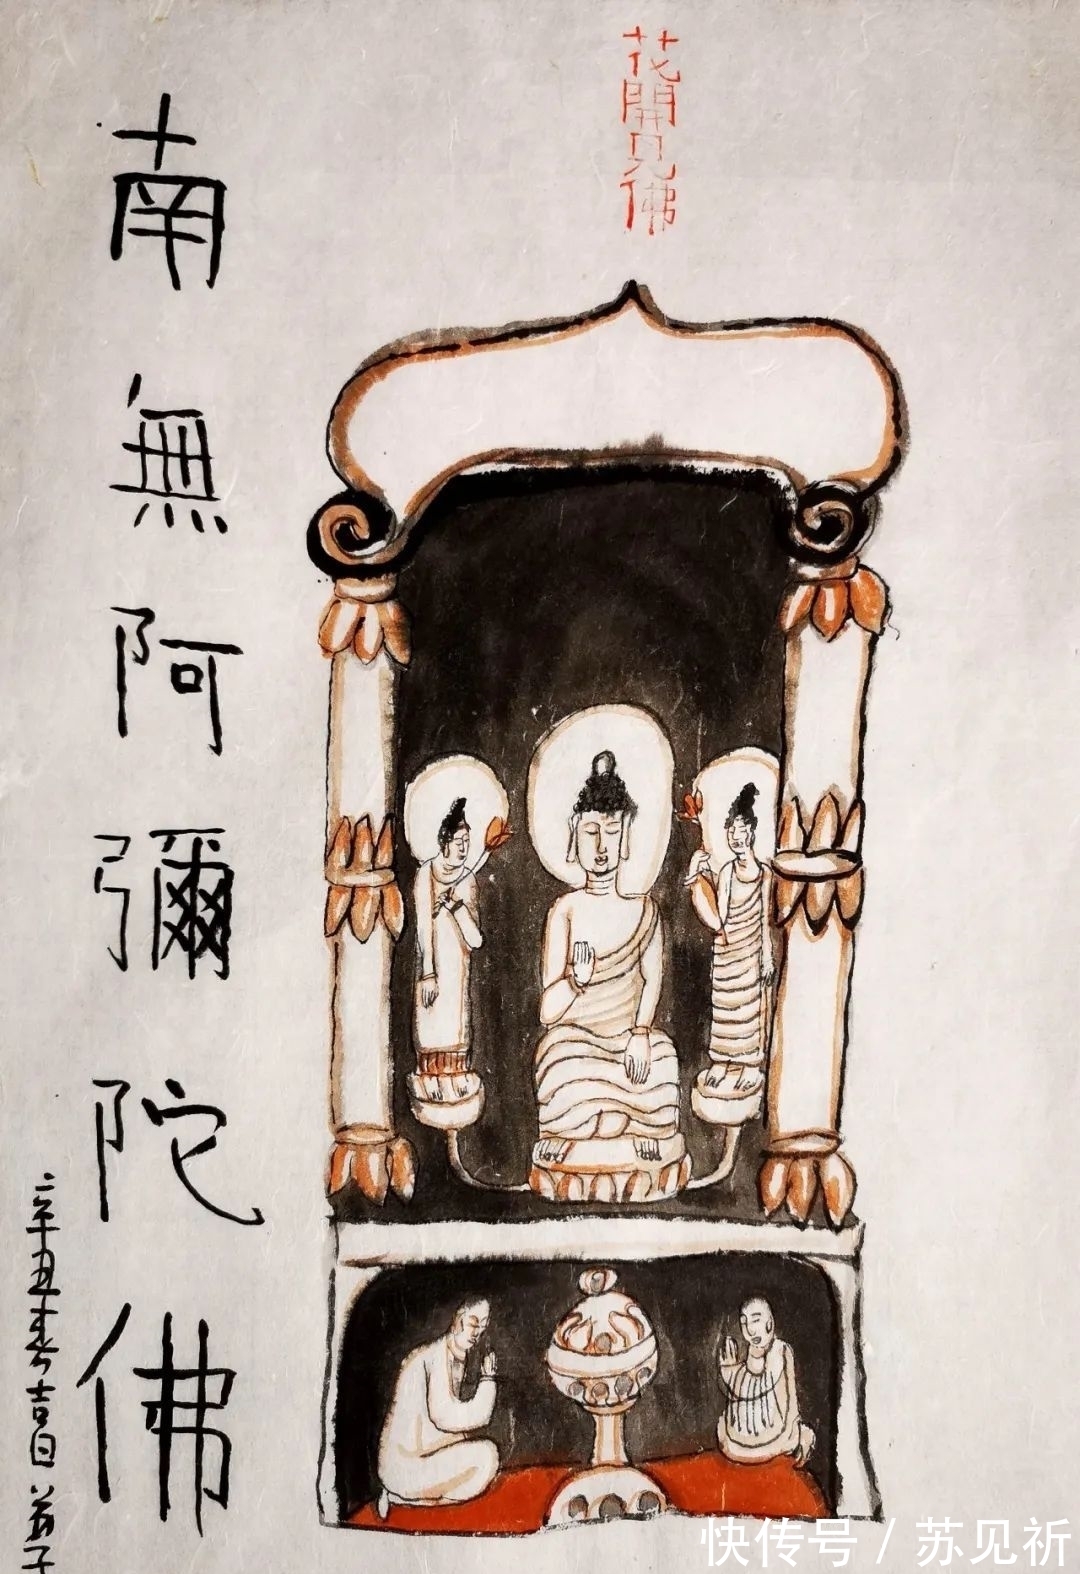 花開見佛
南無阿彌陀佛
辛丑春吉日
快传号 / 苏见祈